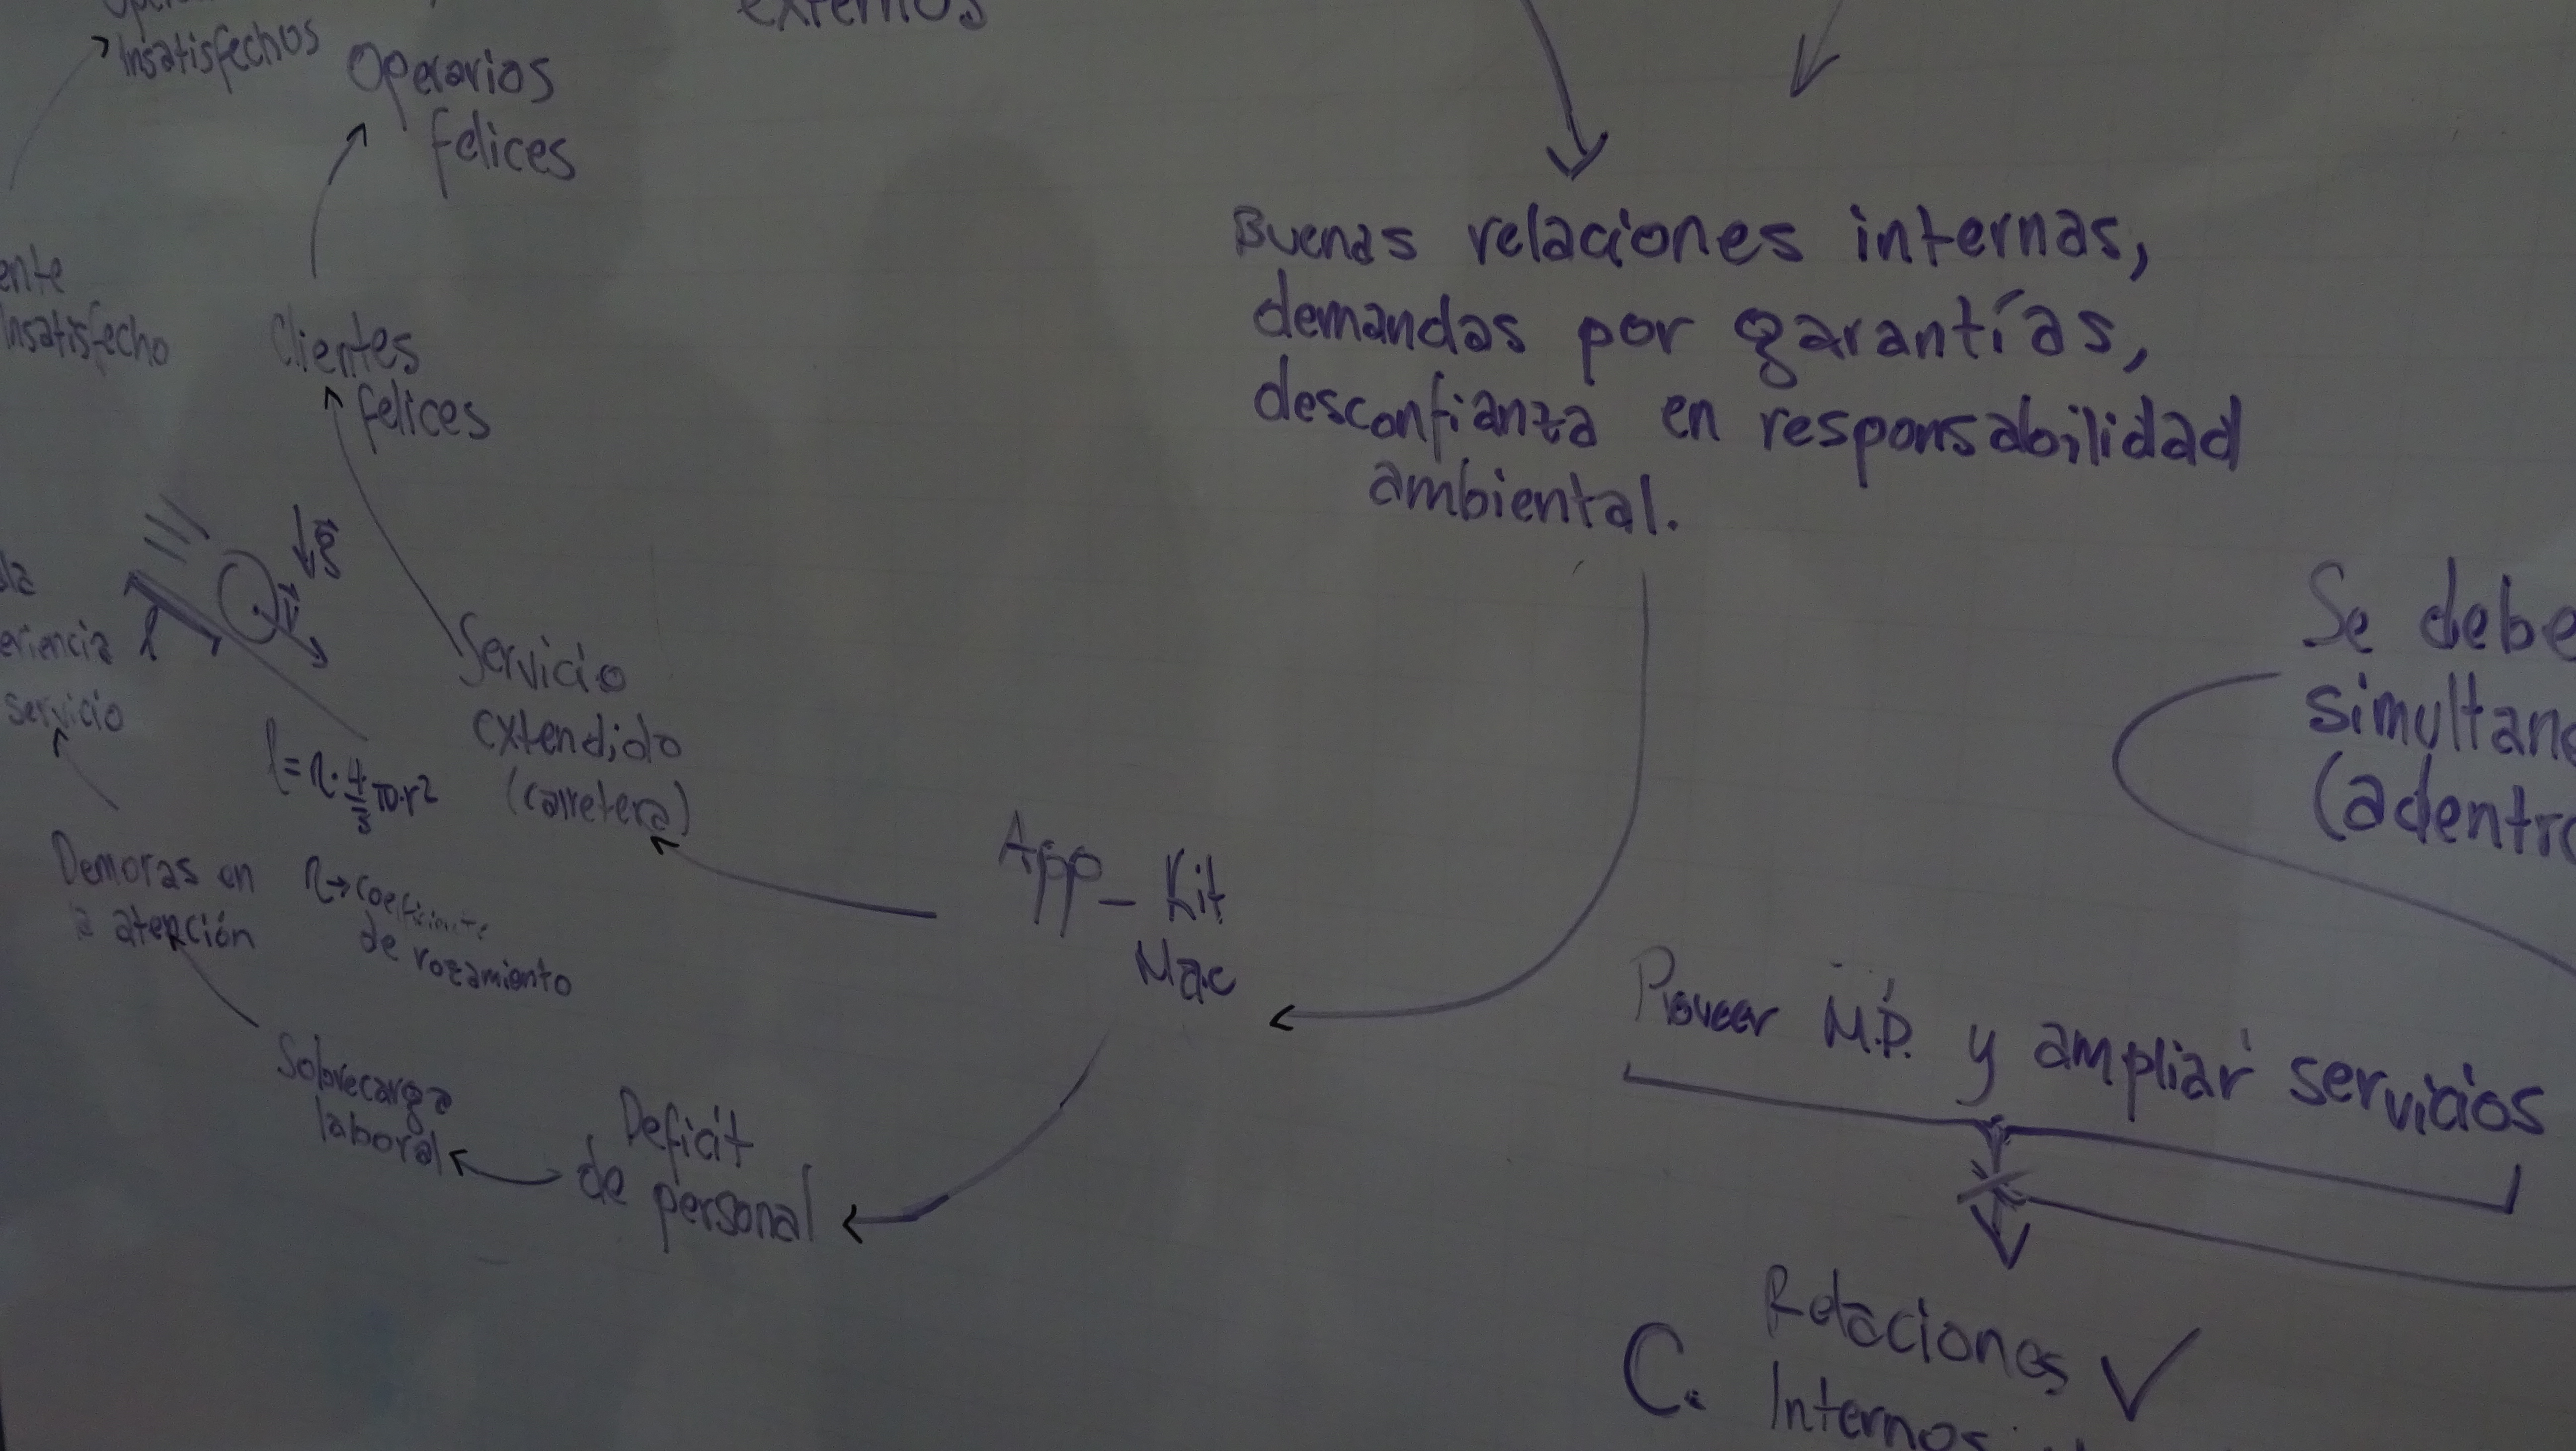 Insatisfechos
externos
Operarios
felices
Buenas relaciones internas,
demandas por garantías,
desconfianza en responsabilidad
ambiental.
ente
Insatisfecho
Clientes
felices
g
v
l
la
eriencia
servicio
Servicio
extendido
(carretera)
l=η·4/3 π·r²
Demoras en
la atención
η→coeficiente
de rozamiento
App_Kit
Mac
Sobrecarga
laboral
Deficit
de personal
Se debe
simultane
(adentro
Proveer M.P. y ampliar servicios
C. Relaciones ✓
Internos